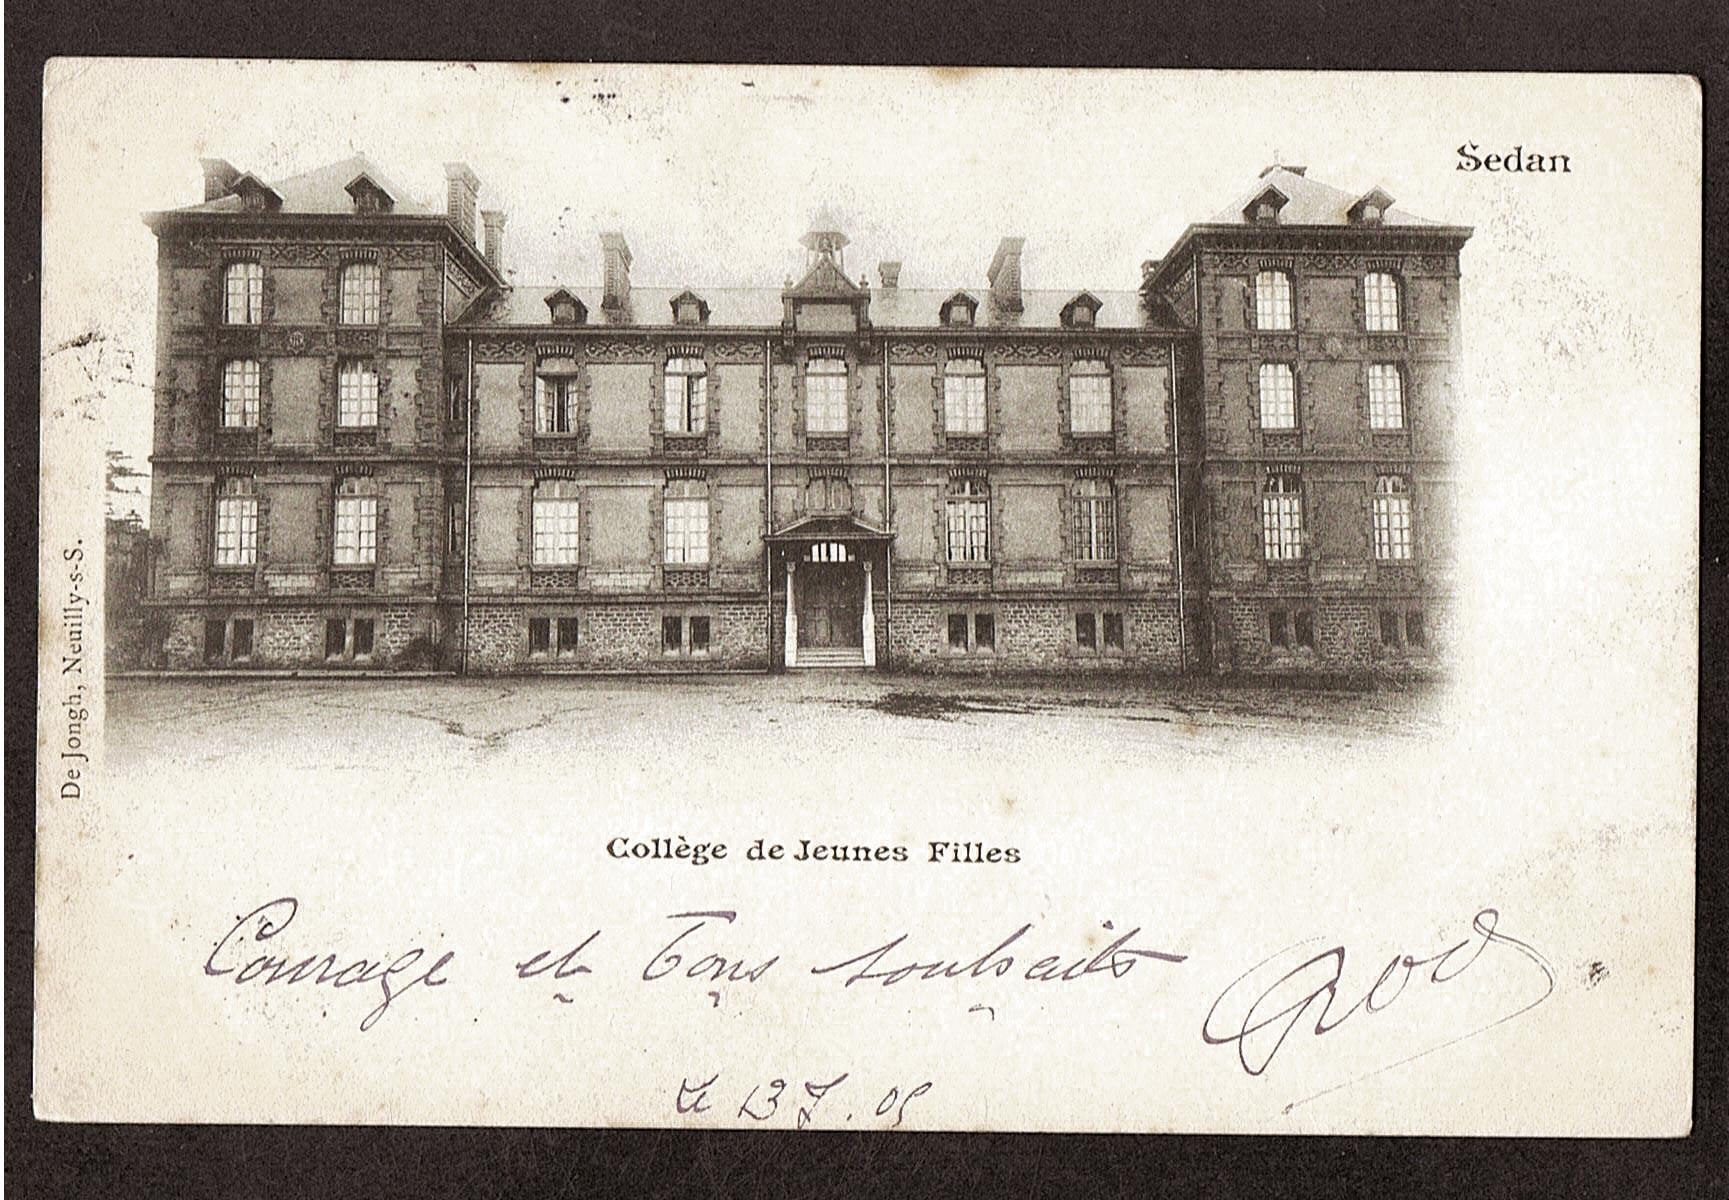 Sedan
De Jongh, Neuilly-s-S.
Collège de Jeunes Filles
Courage et bons souhaits
Le 13 7. 05